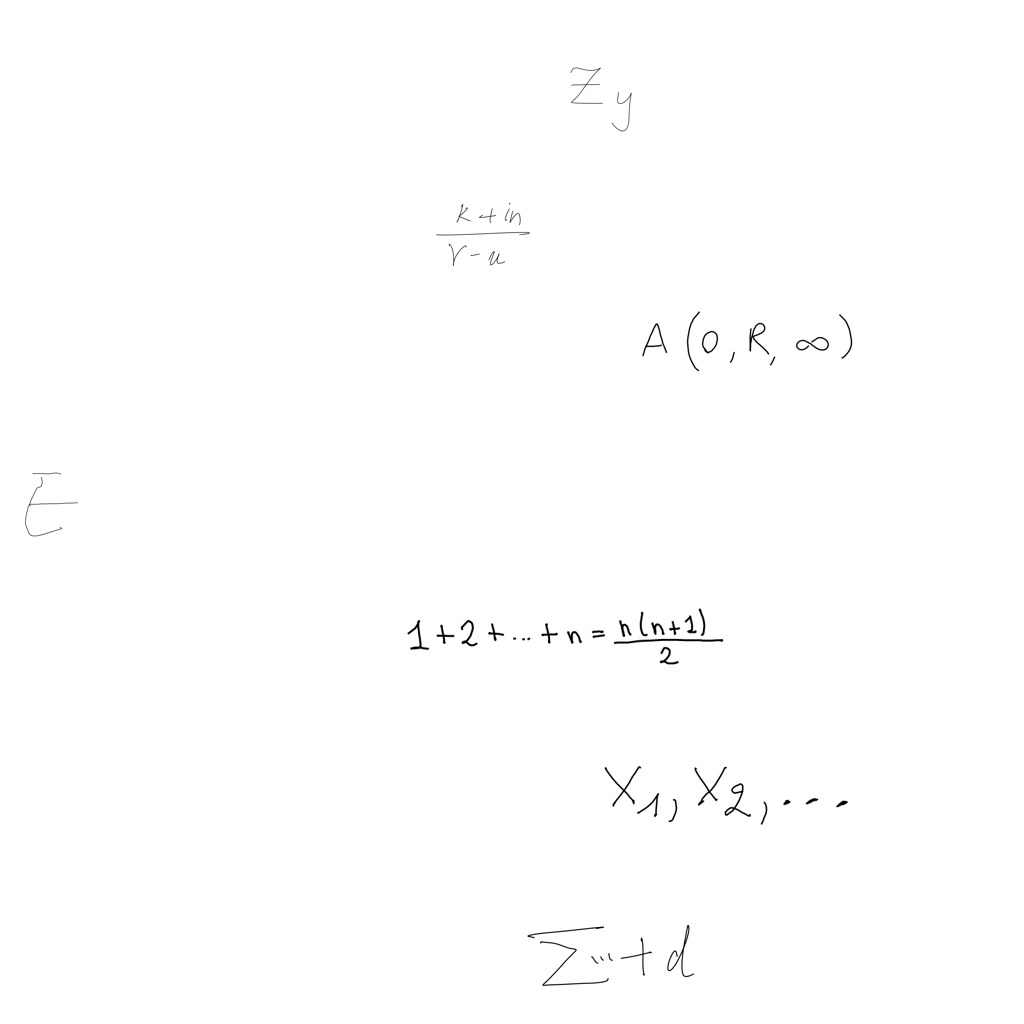 Z y
\frac{k+in}{r-u}
A(0,R,∞)
1+2+...+n=\frac{n(n+1)}{2}
X_1, X_2, ...
\sum ...+d